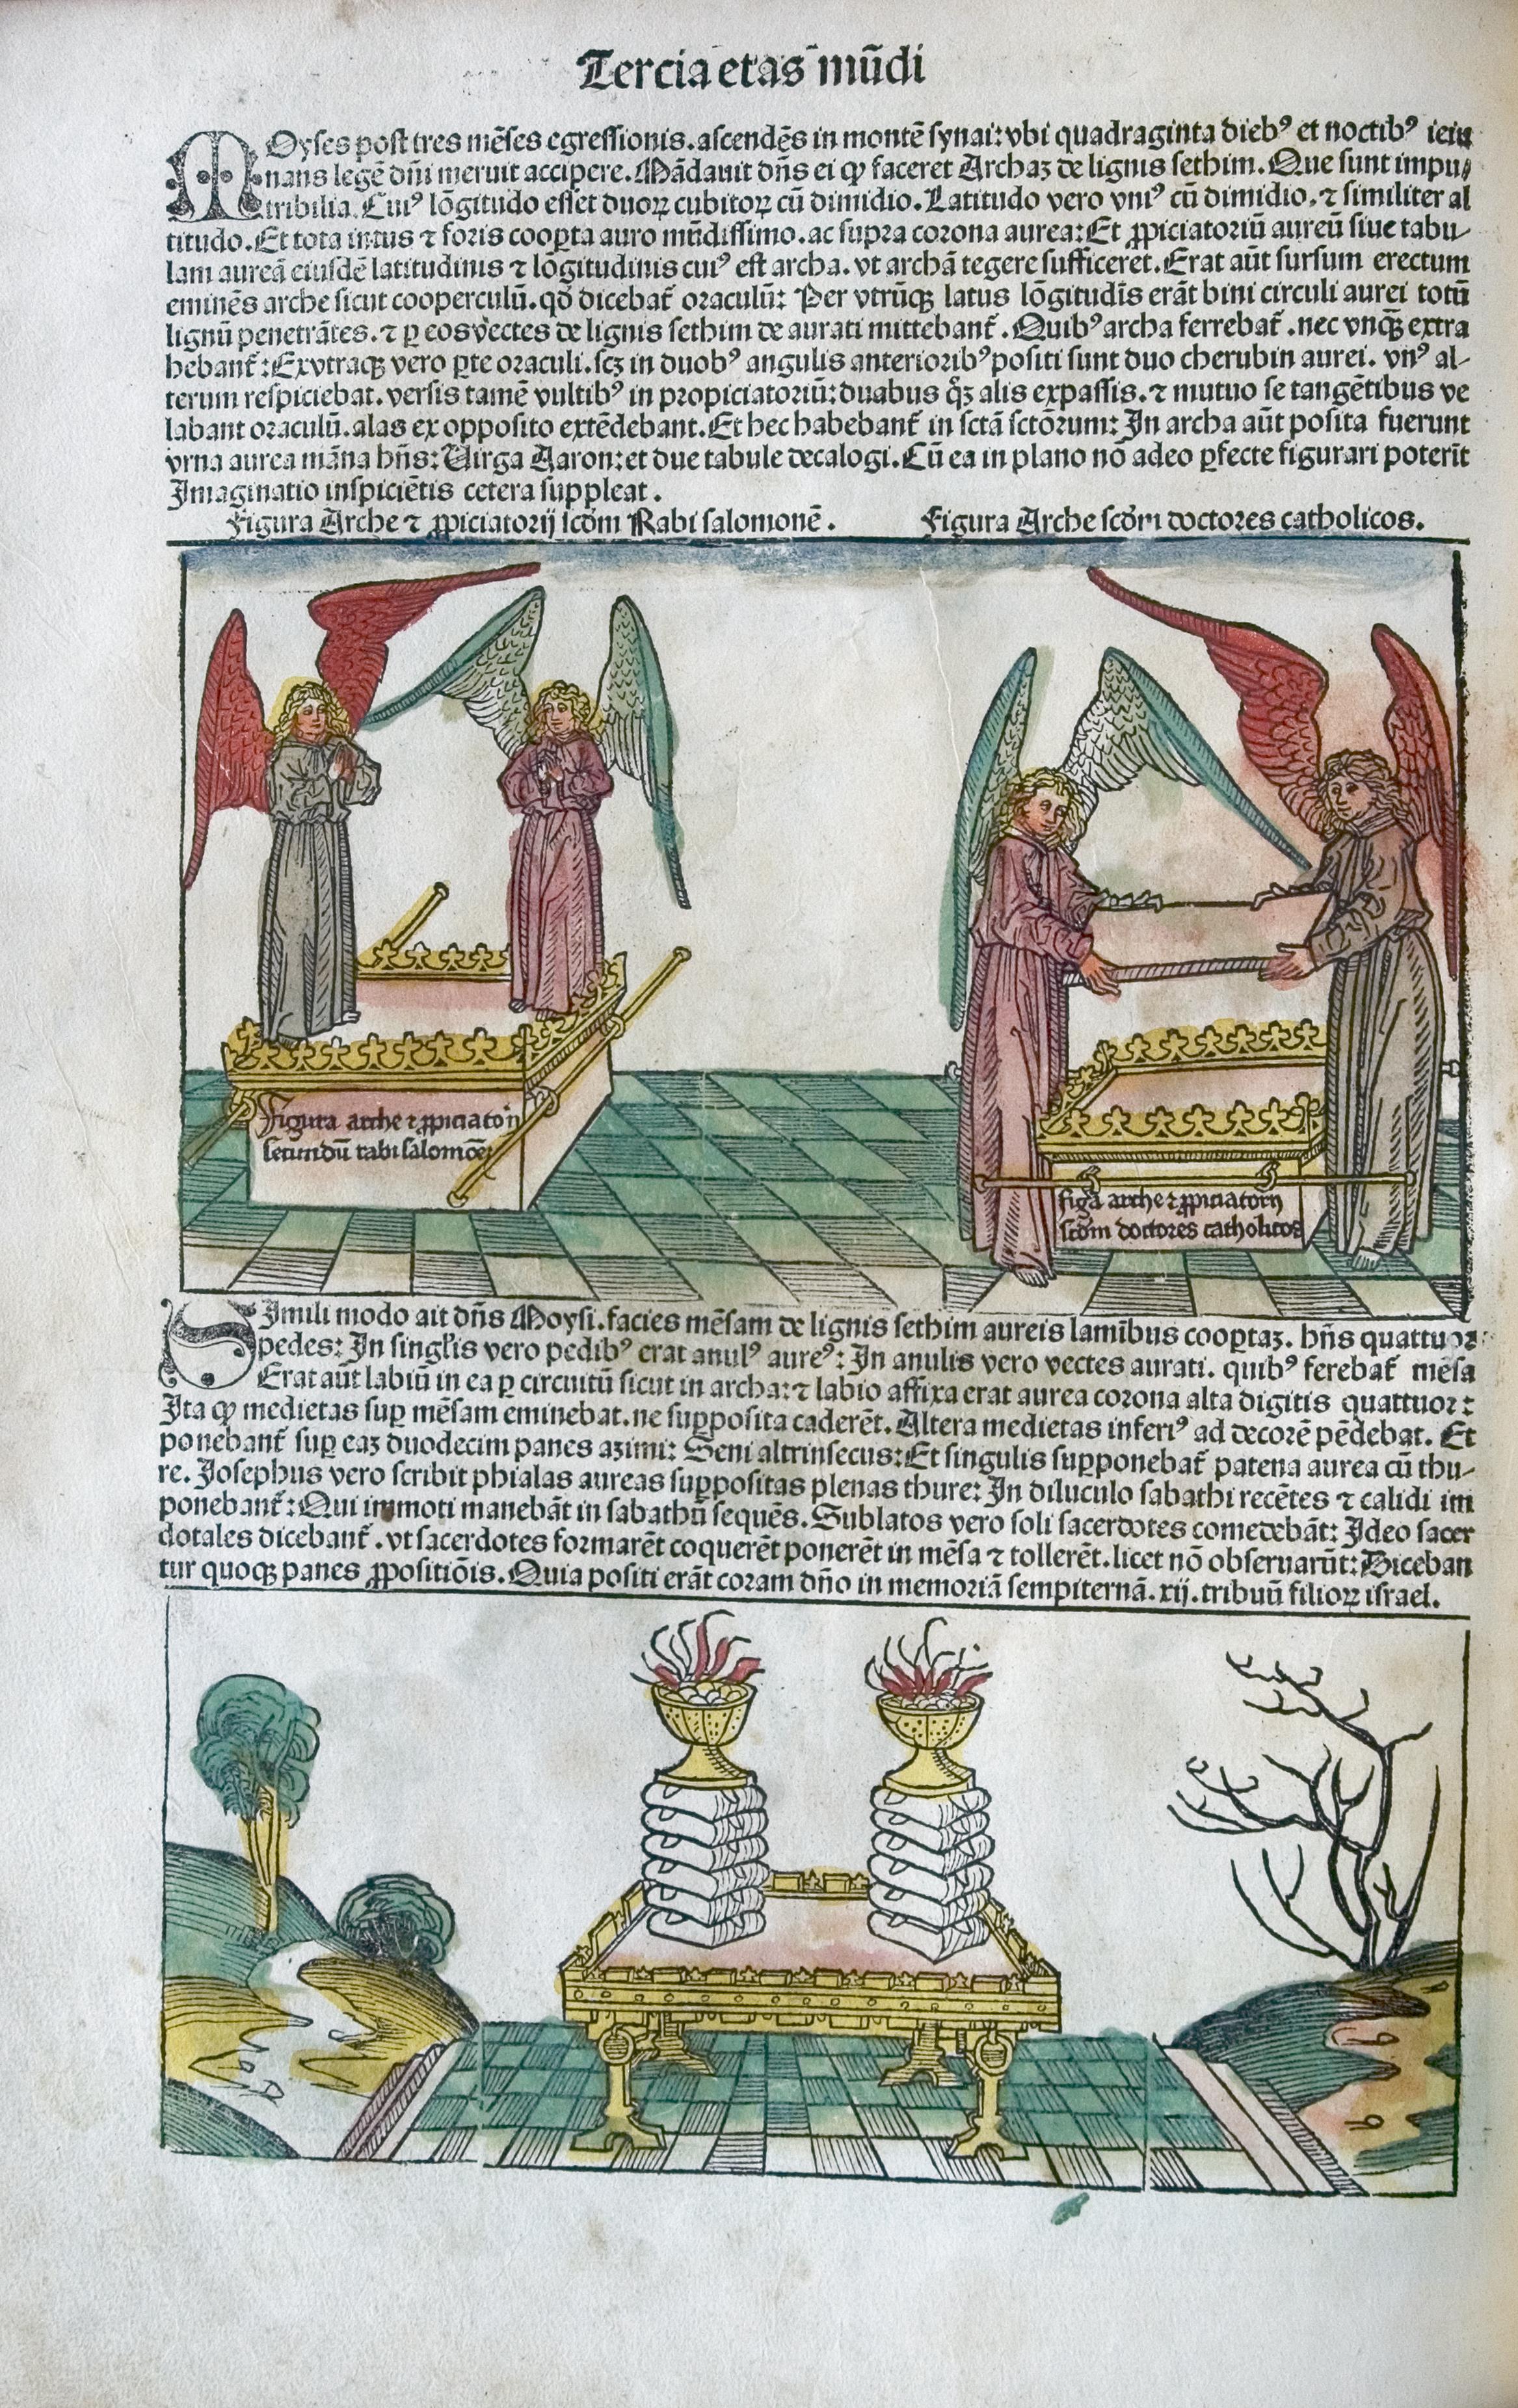 Tercia etas mūdi
MOyses post tres mēses egressionis. ascendēs in montē synai: vbi quadraginta diebꝰ et noctibꝰ ieiu
nans legē dn̄i meruit accipere. Mādauit dn̄s ei ꝙ faceret Archaꝫ de lignis sethim. Que sunt impu⸗
tribilia. Cuiꝰ lōgitudo esset duoꝝ cubitoꝝ cū dimidio. Latitudo vero vniꝰ cū dimidio. ⁊ similiter al
titudo. Et tota intus ⁊ foris cooꝑta auro mūdissimo. ac supra corona aurea: Et ꝓpiciatoriū aureū siue tabu⸗
lam aureā eiusdē latitudinis ⁊ lōgitudinis cuiꝰ est archa. vt archā tegere sufficeret. Erat aūt sursum erectum
eminēs arche sicut cooperculū. qd̄ dicebat᷑ oraculū: Per vtrūqꝫ latus lōgitudīs erāt bini circuli aurei totū
lignū penetrātes. ⁊ ꝑ eos vectes de lignis sethim de aurati mittebant᷑. Quibꝰ archa ferrebat᷑. nec vnqꝫ̄ extra
hebant᷑: Exvtraqꝫ vero ꝑte oraculi. scꝫ in duobꝰ angulis anterioribꝰ positi sunt duo cherubin aurei. vnꝰ al⸗
terum respiciebat. versis tamē vultibꝰ in propiciatoriū: duabus qꝫ̄ alis expassis. ⁊ mutuo se tangētibus ve
labant oraculū. alas ex opposito extēdebant. Et hec habebant᷑ in sctā sctōrum: In archa aūt posita fuerunt
vrna aurea māna hn̄s: Virga Aaron: et due tabule decalogi. Cū ea in plano nō adeo ꝑfecte figurari poterīt
Imaginatio inspiciētis cetera suppleat.
Figura Arche ⁊ ꝓpiciatorij scd̄m Rabi salomonē. Figura Arche scd̄m doctores catholicos.
figura arche ⁊ ꝓpiciatorii
secundū rabi salomōe
figā arche ⁊ ꝓpiciatorii
scd̄m doctores catholicos
SImili modo ait dn̄s Moysi. facies mēsam de lignis sethim aureis lamībus cooꝑtaꝫ. hn̄s quattuor:
pedes: In singl̄is vero pedibꝰ erat anulꝰ aureꝰ: In anulis vero vectes aurati. quibꝰ ferebat᷑ mēsa
Erat aūt labiū in ea ꝑ circuitū sicut in archa: ⁊ labio affixa erat aurea corona alta digitis quattuor:
Ita ꝙ medietas suꝑ mēsam eminebat. ne suꝑposita caderēt. Altera medietas inferiꝰ ad decorē pēdebat. Et
ponebant᷑ suꝑ eaꝫ duodecim panes azimi: Seni altrinsecus: Et singulis suꝑponebat᷑ patena aurea cū thu⸗
re. Josephus vero scribit phialas aureas suꝑpositas plenas thure: In diluculo sabathi recētes ⁊ calidi im
ponebant᷑: Qui immoti manebāt in sabathū sequēs. Sublatos vero soli sacerdotes comedebāt: Ideo sacer
dotales dicebant᷑. vt sacerdotes formarēt coquerēt ponerēt in mēsa ⁊ tollerēt. licet nō obseruarūt: Diceban
tur quoqꝫ panes ꝓpositiōis. Quia positi erāt coram dn̄o in memoriā sempiternā. xij. tribuū filioꝝ israel.